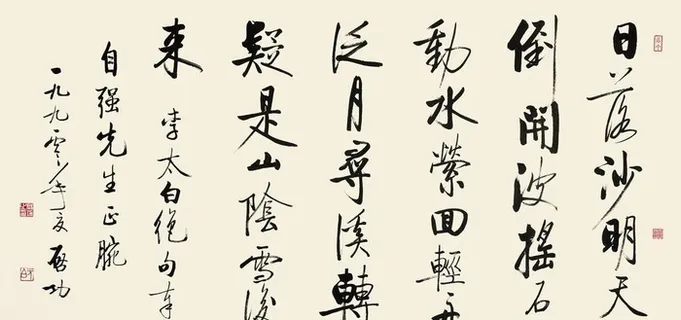 日落沙明天
倒開波搖石
動水縈回輕舟
泛月尋溪轉
疑是山陰雪後
来 李太白絕句奉
自强先生正腕
一九九零年夏 啓功